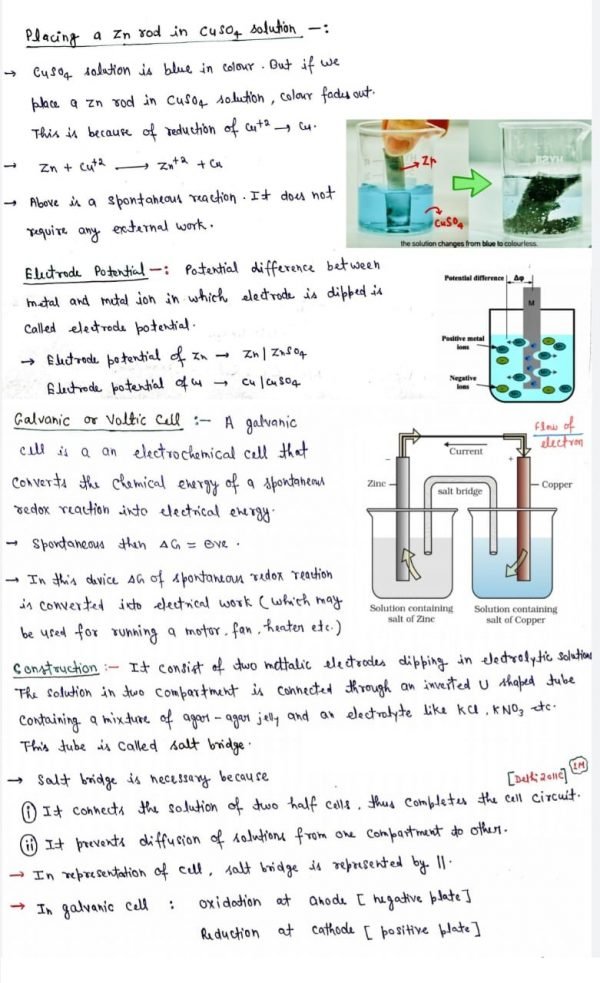 Placing a Zn rod in CuSO4 solution -:
→ CuSO4 solution is blue in colour. But if we
place a Zn rod in CuSO4 solution, colour fades out.
This is because of reduction of Cu+2 → Cu.
→ Zn + Cu+2 ⟶ Zn+2 + Cu
→ Above is a spontaneous reaction. It does not
require any external work.
Zn
CuSO4
the solution changes from blue to colourless.
Electrode Potential -: Potential difference between
metal and metal ion in which electrode is dipped is
called electrode potential.
→ Electrode potential of Zn → Zn | ZnSO4
Electrode potential of Cu → Cu | CuSO4
Potential difference Δφ
M
Positive metal
ions
Negative
ions
Galvanic or Voltic Cell :- A galvanic
cell is a an electrochemical cell that
converts the chemical energy of a spontaneous
redox reaction into electrical energy.
→ Spontaneous then ΔG = ⊖ve.
→ In this device ΔG of spontaneous redox reaction
is converted into electrical work (which may
be used for running a motor, fan, heater etc.)
Flow of
electron
Current
-
+
Zinc
salt bridge
Copper
Solution containing
salt of Zinc
Solution containing
salt of Copper
Construction :- It consist of two mettalic electrodes dipping in electrolytic solution
The solution in two compartment is connected through an inverted U shaped tube
containing a mixture of agar-agar jelly and an electrolyte like KCl, KNO3 etc.
This tube is called salt bridge.
→ Salt bridge is necessary because [Delhi 2011C] 1M
(i) It connects the solution of two half cells, thus completes the cell circuit.
(ii) It prevents diffusion of solutions from one compartment to other.
→ In representation of cell, salt bridge is represented by ||.
→ In galvanic cell : oxidation at anode [negative plate]
Reduction at cathode [positive plate]